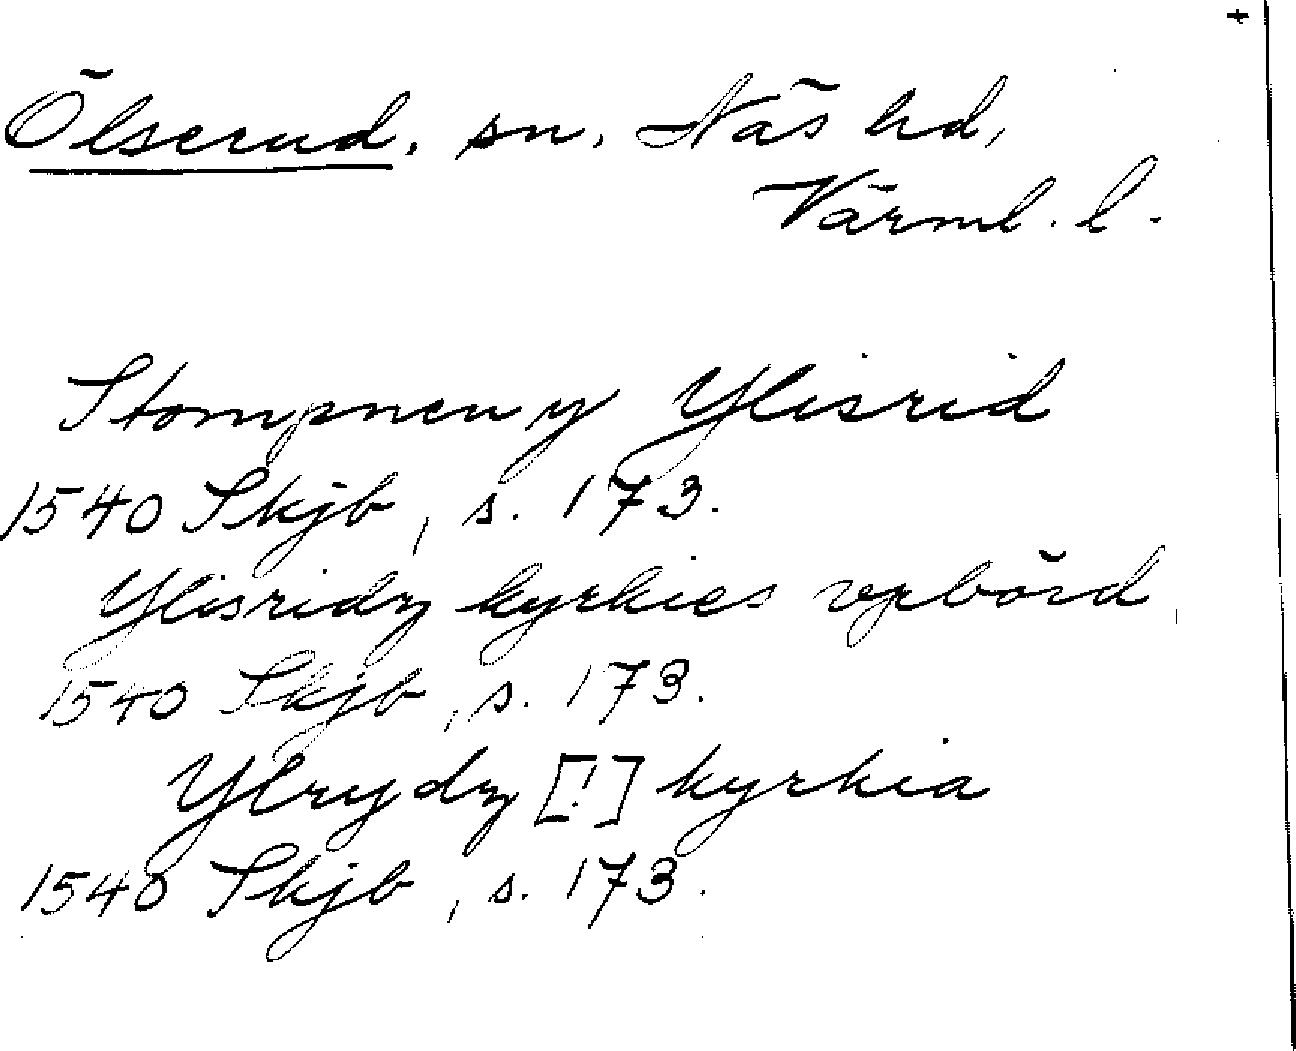 +
Ölserud, sn, Näs hd,
Värml. l.
Stompnen y Ylisrid
1540 Skjb, s. 173.
Ylisridz kyrkies vpbörd
1540 Skjb, s. 173.
Ylrydz [!] kyrkia
1540 Skjb, s. 173.